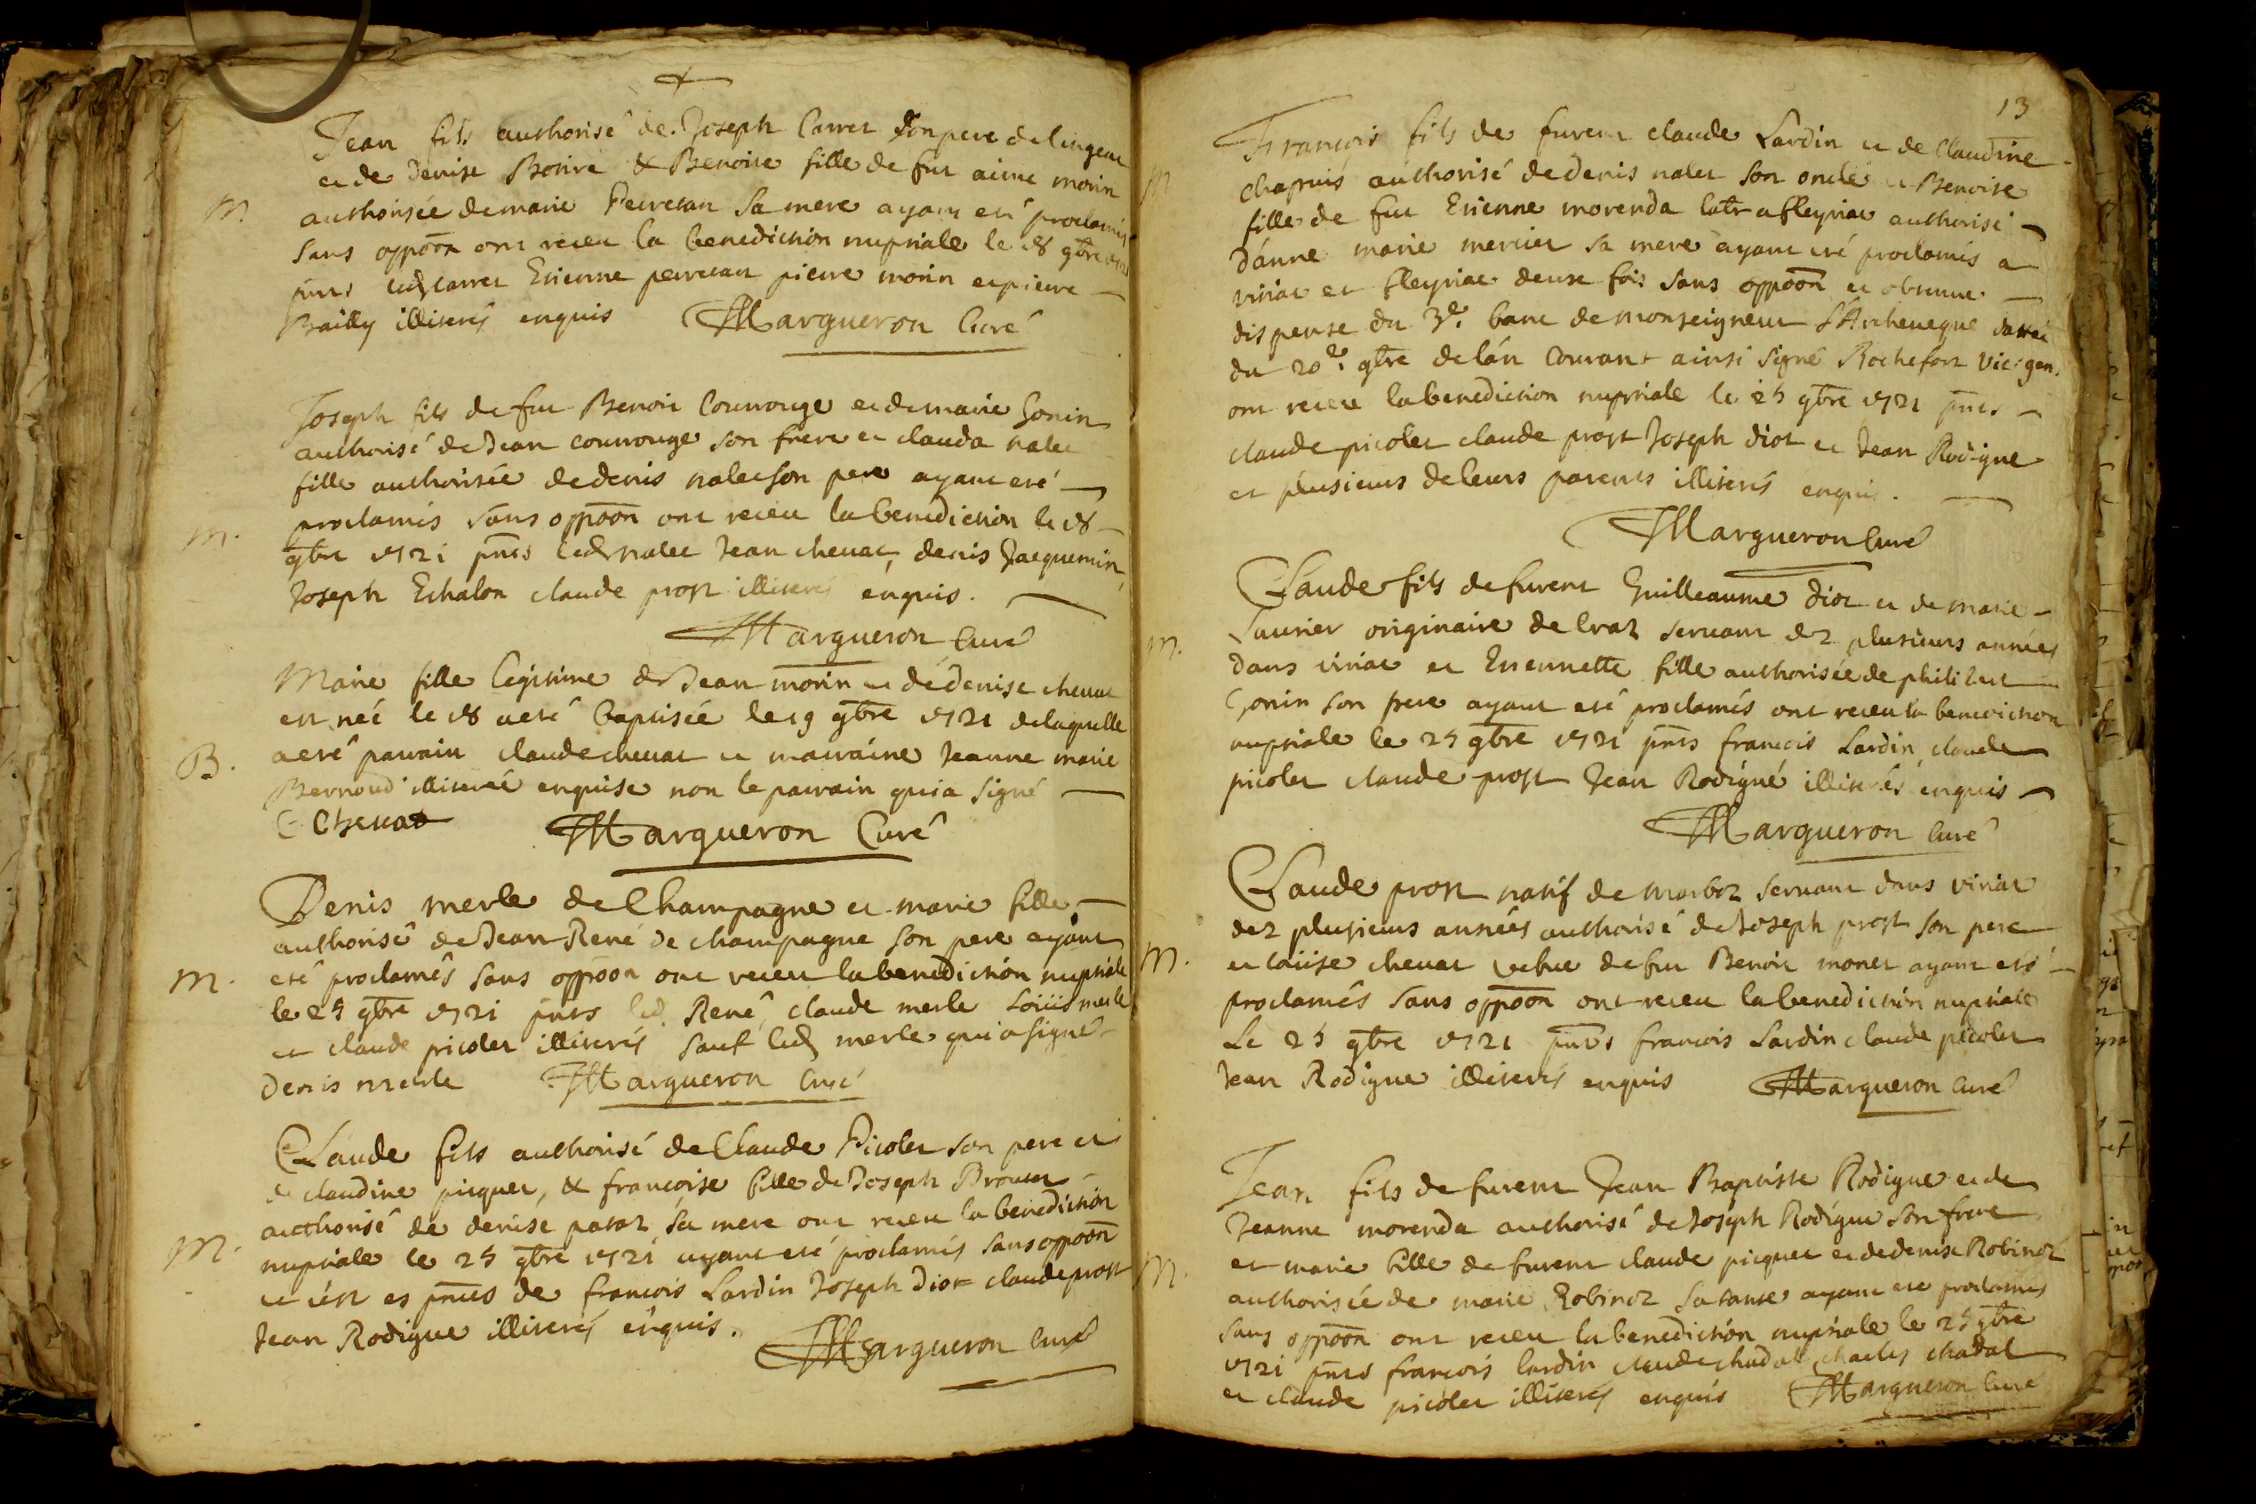 Jean fils authorisé de Joseph Carret son pere de lingeat
et de Denise Boture & Benoite fille de fut aimé morin
M. authorisée de marie Peuvetan sa mere ayant eté proclamés
sans oppoõn ont receu la benediction nuptiale le 18 gbre
pnts led carret Etienne peuvetan pierre morin et pierre
Bailly illiterés enquis Margueron Curé
Joseph fils de fut Benoit Couvouge et de marie Gonin
authorisé de Jean couvouge son frere et clauda nalet
fille authorisée de denis nalet son pere ayant eté
M. proclamés sans oppoõn ont receu la benediction le 18
gbre 1721 pnts led nalet Jean chevat, denis Jacquemin,
Joseph Echalon claude prost illiterés enquis.
Margueron Curé
Marie fille legitime de Jean morin et de denise chevat
est née le 18 a eté baptisée le 19 gbre 1721 de laquelle
B. a eté parrain claude chevat et marraine Jeanne marie
Bernoud illiterée enquise non le parrain qui a signé
C Chevat Margueron Curé
Denis merle de Champagne et marie fille
authorisé de Jean René de champagne son pere ayant
M. eté proclamés sans oppoõn ont receu la benediction nuptiale
le 25 gbre 1721 pnts led. René, claude merle Loüis merle
et claude picolet illiterés sauf led merle qui a signé
Denis merle Margueron Curé
Claude fils authorisé de Claude Picolet son pere et
de claudine picquet, & francoise fille de Joseph Brouat
authorisé de denise patat sa mere ont receu la benediction
M. nuptiale le 25 gbre 1721 ayant eté proclamés sans oppoõn
et c'est es pnces de francois Lardin Joseph Diot claude prost
Jean Rodigue illiterés enquis.
Margueron Curé
13
Francois fils de furent claude Lardin et de Claudine
M chapuis authorisé de denis nalet son oncle et Benoite
fille de fut Etienne morenda latr a fleyriat authorisé
d'anne marie mercier sa mere ayant eté proclamés a
viriat et fleyriat deux fois sans oppoõn et obtenue
dispense du 3e. banc de monseigneur l'Archeveque dattée
du 20e gbre de l'an courant ainsi signé Rochefort vic. gen.
ont receu la benediction nuptiale le 25 gbre 1721 pnts
claude picolet claude prost Joseph diot et Jean Rodigue
et plusieurs de leurs parents illiterés enquis.
Margueron Curé
Claude fils de furent Guilleaume diot et de marie
M. Laurier originaire de Craz servant dez plusieurs années
dans viriat et Etiennette fille authorisée de philibert
Gonin son frere ayant eté proclamés ont receu la benediction
nuptiale le 25 gbre 1721 pnts francois Lardin claude
picolet claude prost Jean Rodigué illiterés enquis
Margueron Curé
Claude prost natif de marboz servant dans viriat
dez plusieurs années authorisé de Joseph prost son pere
M. et Loüise chevat vefve de fut Benoit monet ayant eté
proclamés sans oppoõn ont receu la benediction nuptiale
Le 25 gbre 1721 pnts francois Lardin claude picolet
Jean Rodigue illiterés enquis Margueron Curé
Jean fils de furent Jean Baptiste Rodigue et de
Jeanne morenda authorisé de Joseph Rodigue son frere
M. et marie fille de furent claude picquet et de denise Robinoz
authorisée de marie Robinoz sa tante ayant eté proclamés
sans oppoõn ont receu la benediction nuptiale le 25 gbre
1721 pnts francois lardin claude chadal charles chadal
et claude picolet illiterés enquis Margueron Curé